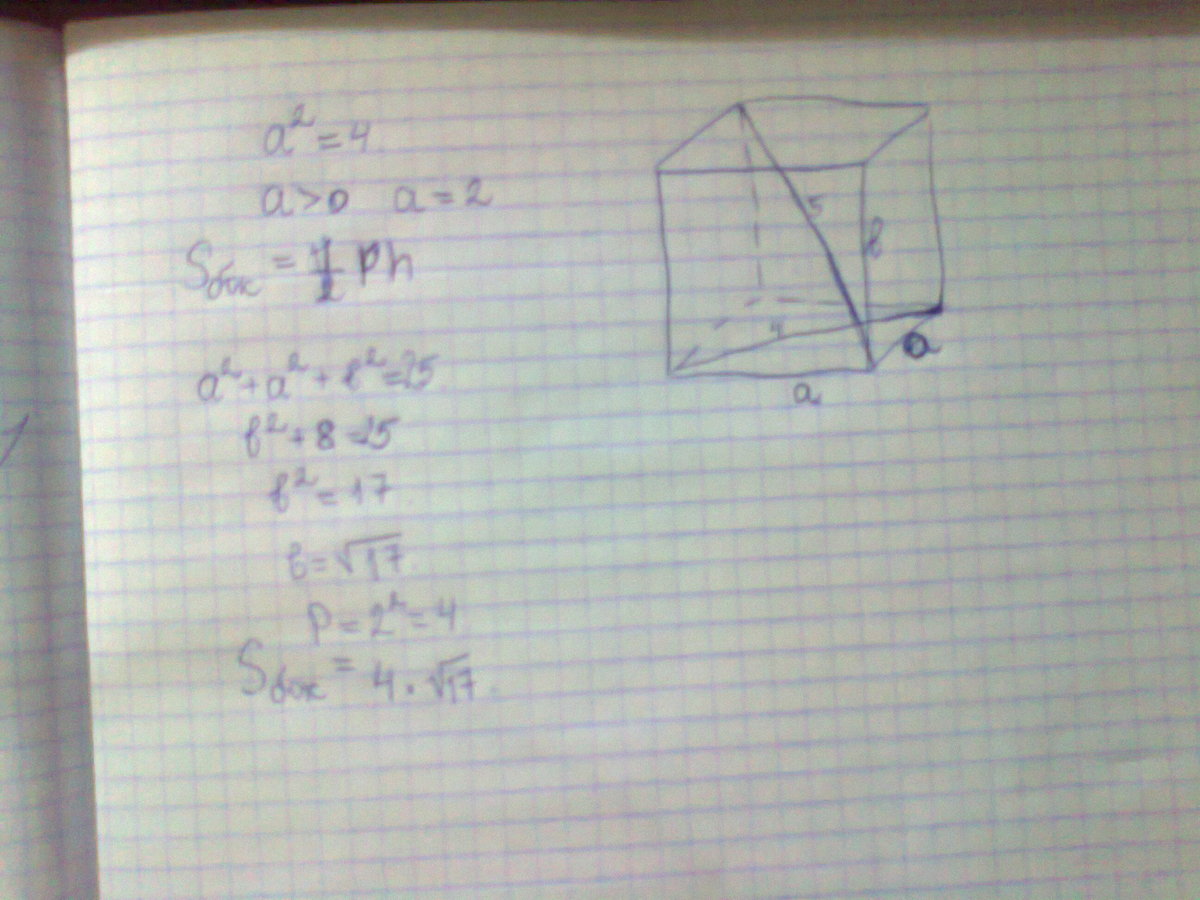 a² = 4
a > 0 a = 2
Sбок = 1/2 Ph
a² + a² + b² = 25
b² + 8 = 25
b² = 17
b = √17
P = 2² = 4
Sбок = 4 · √17
5
b
4
a
a